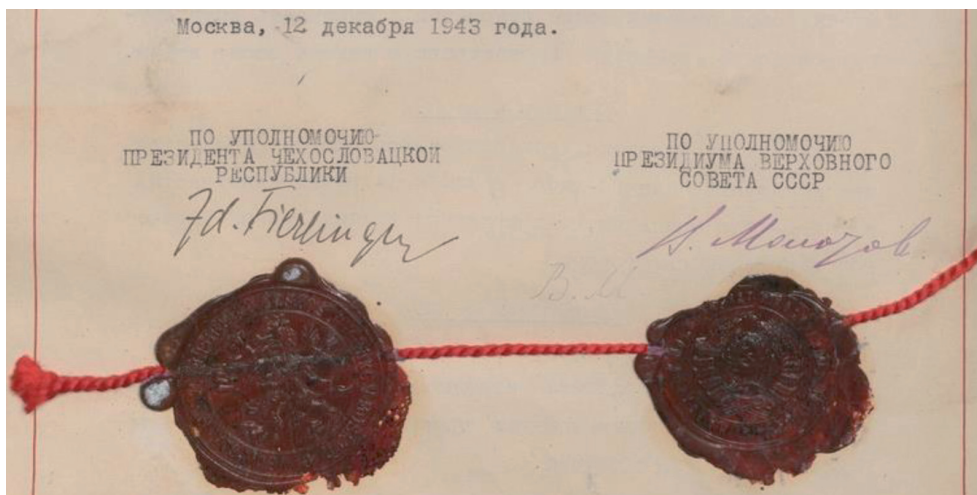 Москва, 12 декабря 1943 года.
ПО УПОЛНОМОЧИЮ
ПРЕЗИДЕНТА ЧЕХОСЛОВАЦКОЙ
РЕСПУБЛИКИ
ПО УПОЛНОМОЧИЮ
ПРЕЗИДИУМА ВЕРХОВНОГО
СОВЕТА СССР
Zd. Fierlinger
В. Молотов
В. М